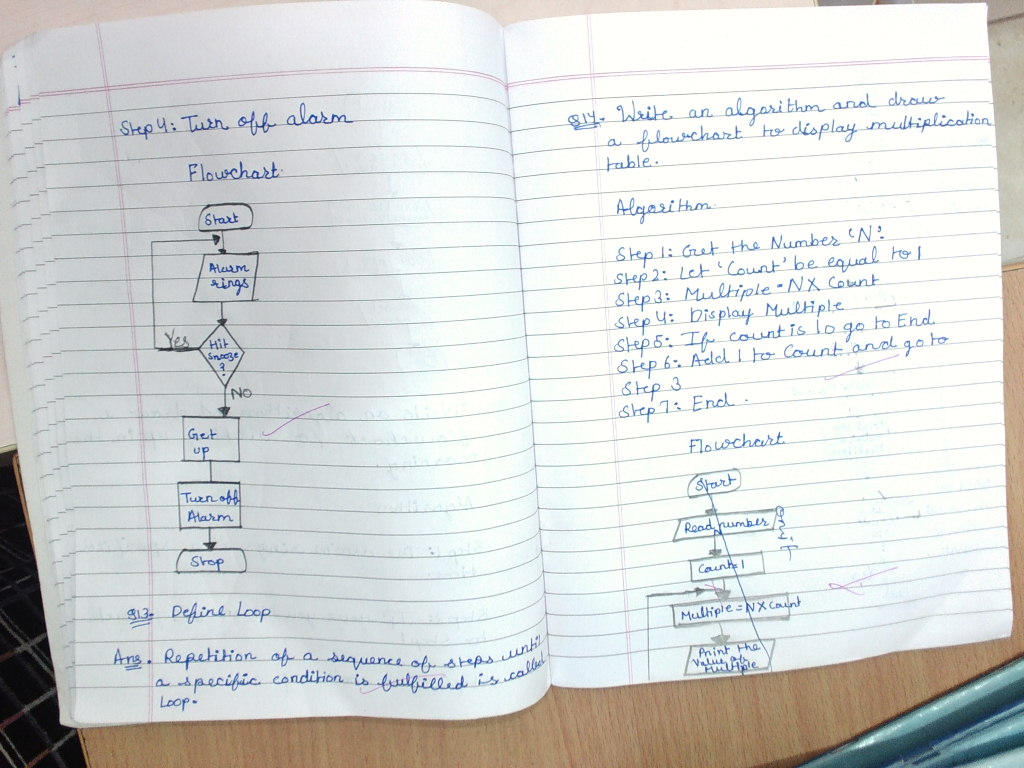 Step 4: Turn off alarm
Flowchart
Start
Alarm
rings
Yes
Hit
Snooze
?
NO
Get
up
Turn off
Alarm
Stop
Q13- Define Loop
Ans. Repetition of a sequence of steps until
a specific condition is fulfilled is called
Loop.
Q14- Write an algorithm and draw
a flowchart to display multiplication
table.
Algorithm
Step 1: Get the Number 'N'.
Step 2: Let 'Count' be equal to 1
Step 3: Multiple = N X Count
Step 4: Display Multiple
Step 5: If count is 10 go to End
Step 6: Add 1 to Count and go to
Step 3
Step 7: End.
Flowchart
Start
Read number
Count=1
Multiple = N X Count
Print the
Value of
Multiple